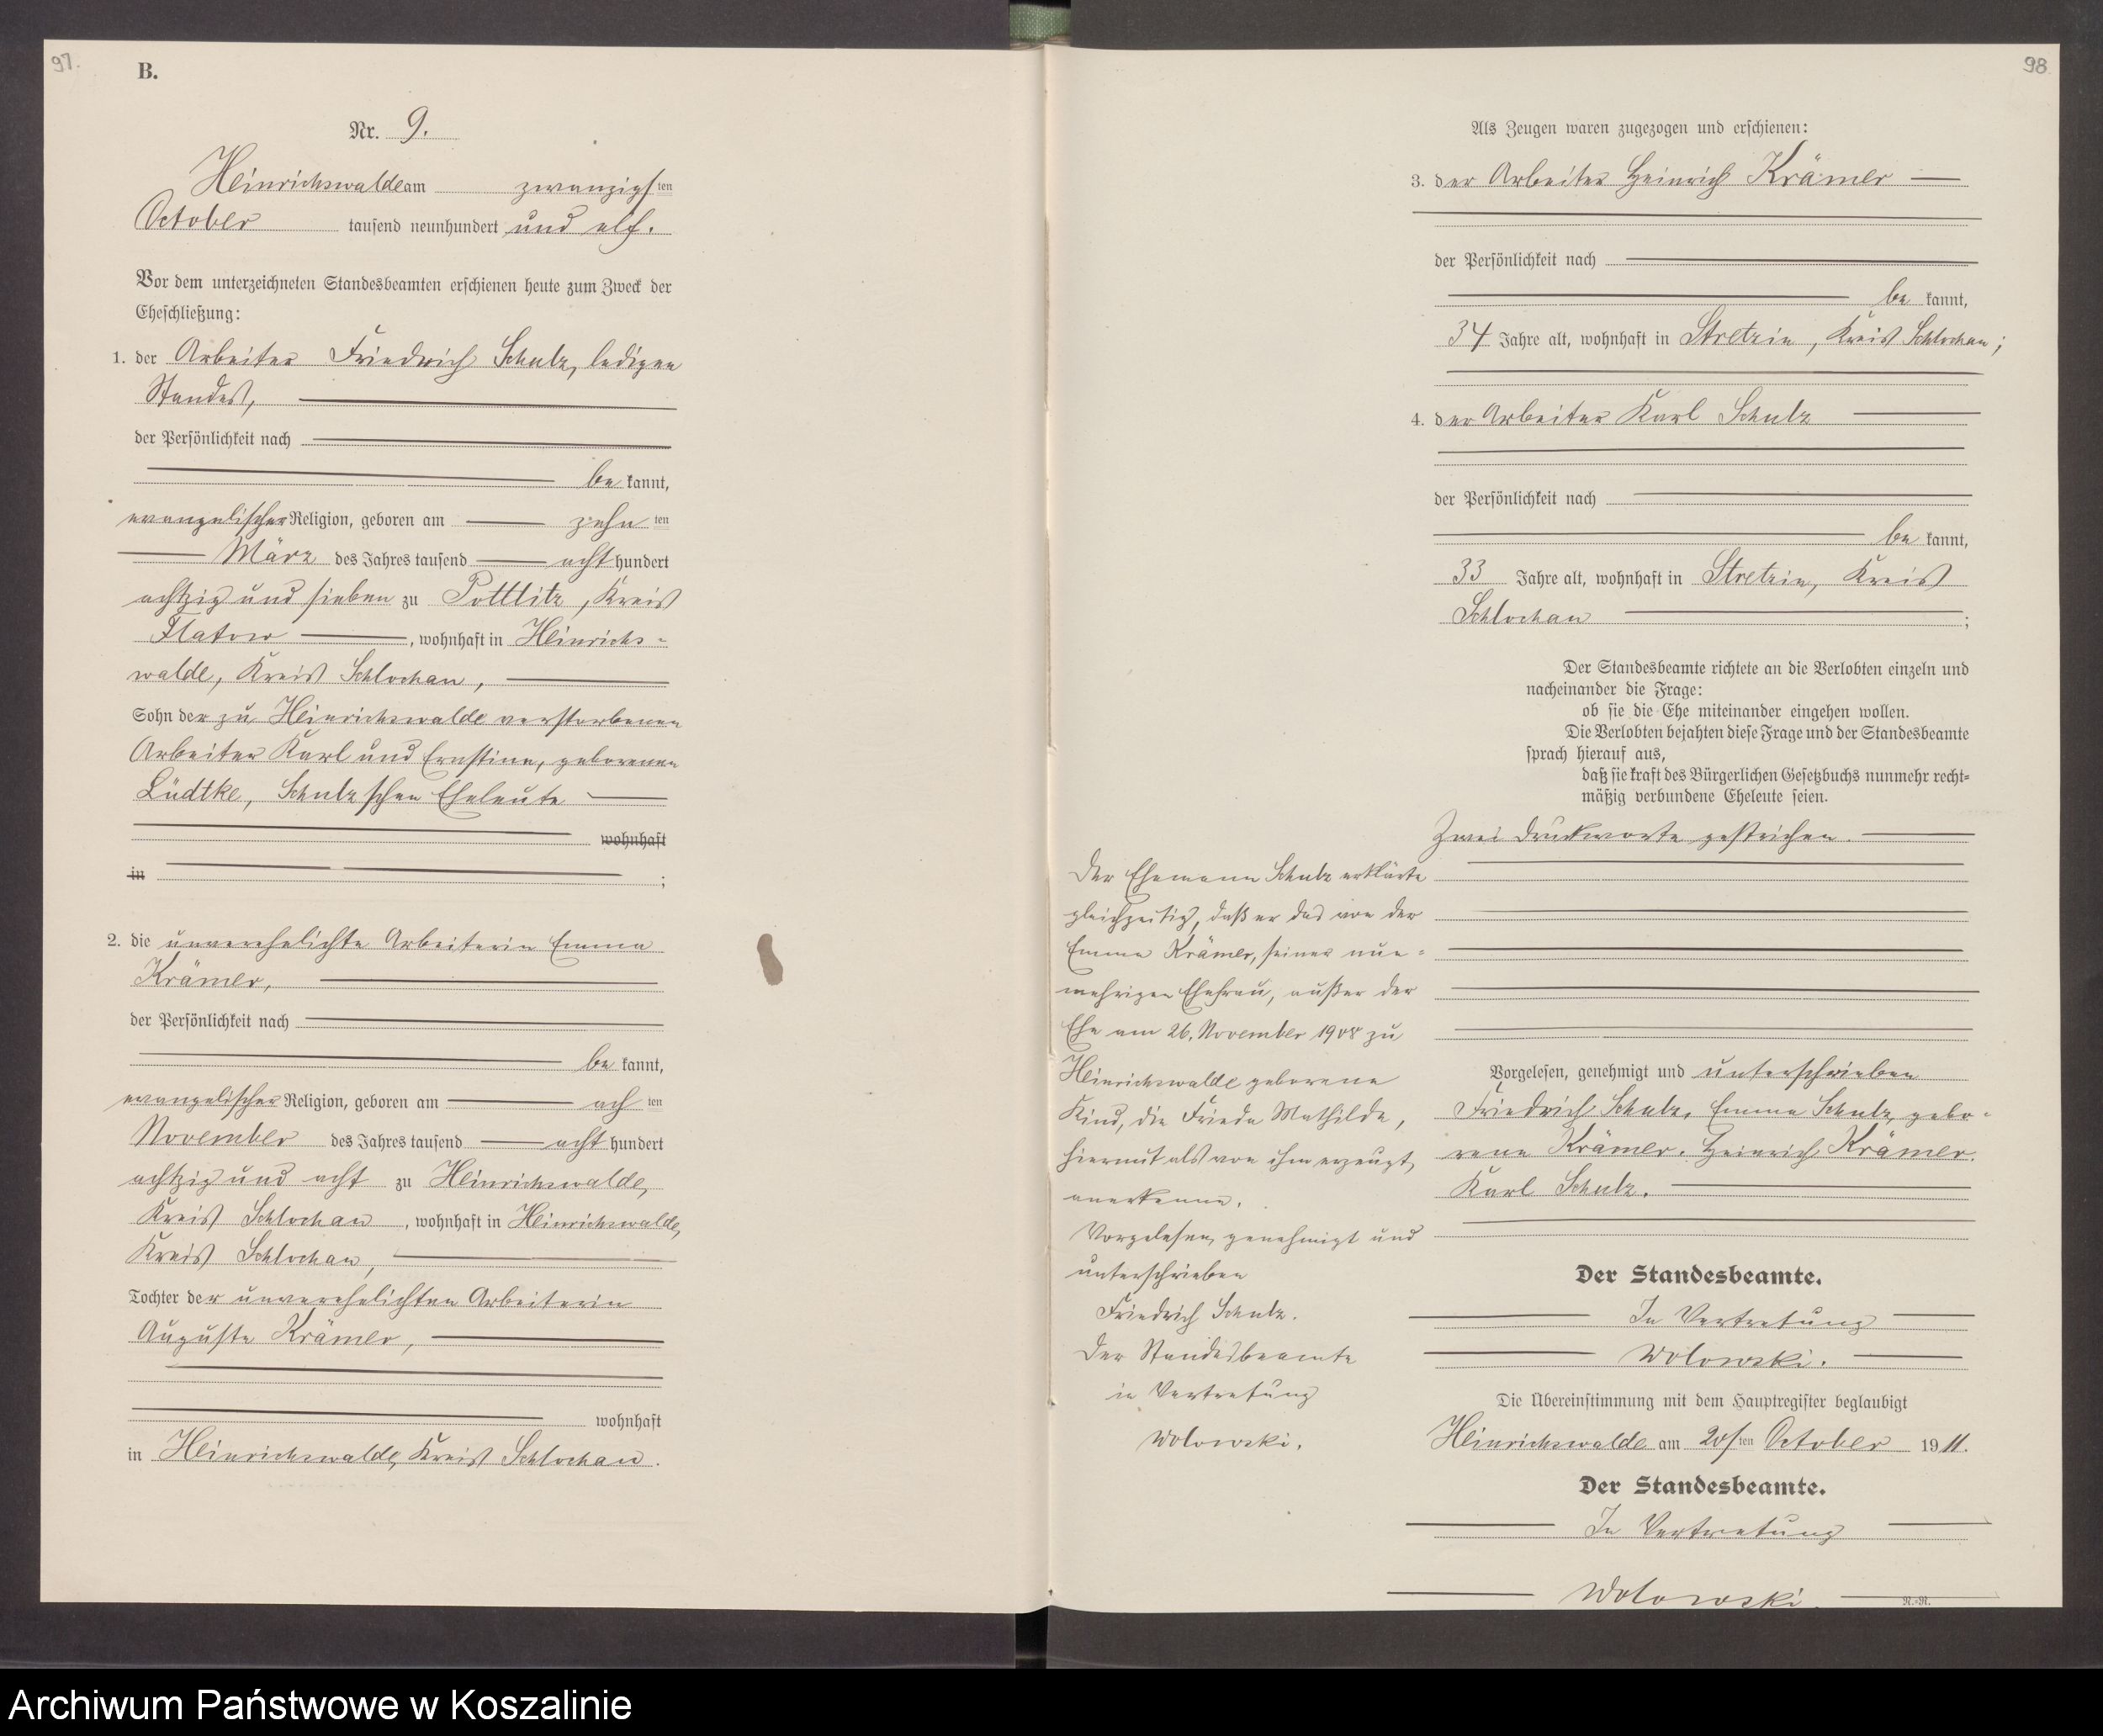 97.
B.
Nr. 9.
Heinrichswalde am zwanzigsten
October tausend neunhundert und elf.
Vor dem unterzeichneten Standesbeamten erschienen heute zum Zweck der
Eheschließung:
1. der Arbeiter Friedrich Schulz, ledigen
Standes,
der Persönlichkeit nach
be kannt,
evangelischer Religion, geboren am zehn ten
März des Jahres tausend acht hundert
achtzig und sieben zu Pottlitz, Kreis
Flatow, wohnhaft in Heinrichs-
walde, Kreis Schlochau,
Sohn der zu Heinrichswalde verstorbenen
Arbeiter Karl und Ernstine, geborenen
Lüdtke, Schulz'schen Eheleute
wohnhaft
in ;
2. die unverehelichte Arbeiterin Emma
Krämer,
der Persönlichkeit nach
be kannt,
evangelischer Religion, geboren am ach ten
November des Jahres tausend acht hundert
achtzig und acht zu Heinrichswalde,
Kreis Schlochau, wohnhaft in Heinrichswalde,
Kreis Schlochau,
Tochter der unverehelichten Arbeiterin
Auguste Krämer,
wohnhaft
in Heinrichswalde, Kreis Schlochau.
98
Als Zeugen waren zugezogen und erschienen:
3. der Arbeiter Heinrich Krämer
der Persönlichkeit nach
be kannt,
34 Jahre alt, wohnhaft in Stretzin, Kreis Schlochau;
4. der Arbeiter Karl Schulz
der Persönlichkeit nach
be kannt,
33 Jahre alt, wohnhaft in Stretzin, Kreis
Schlochau ;
Der Standesbeamte richtete an die Verlobten einzeln und
nacheinander die Frage:
ob sie die Ehe miteinander eingehen wollen.
Die Verlobten bejahten diese Frage und der Standesbeamte
sprach hierauf aus,
daß sie kraft des Bürgerlichen Gesetzbuchs nunmehr recht-
mäßig verbundene Eheleute seien.
Zwei Druckworte gestrichen.
Der Ehemann Schulz erklärte
gleichzeitig, daß er das von der
Emma Krämer, seiner nun-
mehrigen Ehefrau, außer der
Ehe am 26. November 1908 zu
Heinrichswalde geborene
Kind, die Frieda Mathilde,
hiermit als von ihm erzeugt,
anerkenne.
Vorgelesen, genehmigt und
unterschrieben
Friedrich Schulz.
Der Standesbeamte
in Vertretung
Wolowski.
Vorgelesen, genehmigt und unterschrieben
Friedrich Schulz, Emma Schulz, gebo-
rene Krämer. Heinrich Krämer.
Karl Schulz.
Der Standesbeamte.
In Vertretung
Wolowski.
Die Übereinstimmung mit dem Hauptregister beglaubigt
Heinrichswalde am 20sten October 1911.
Der Standesbeamte.
In Vertretung
Wolowski.
N.-R.
Archiwum Państwowe w Koszalinie